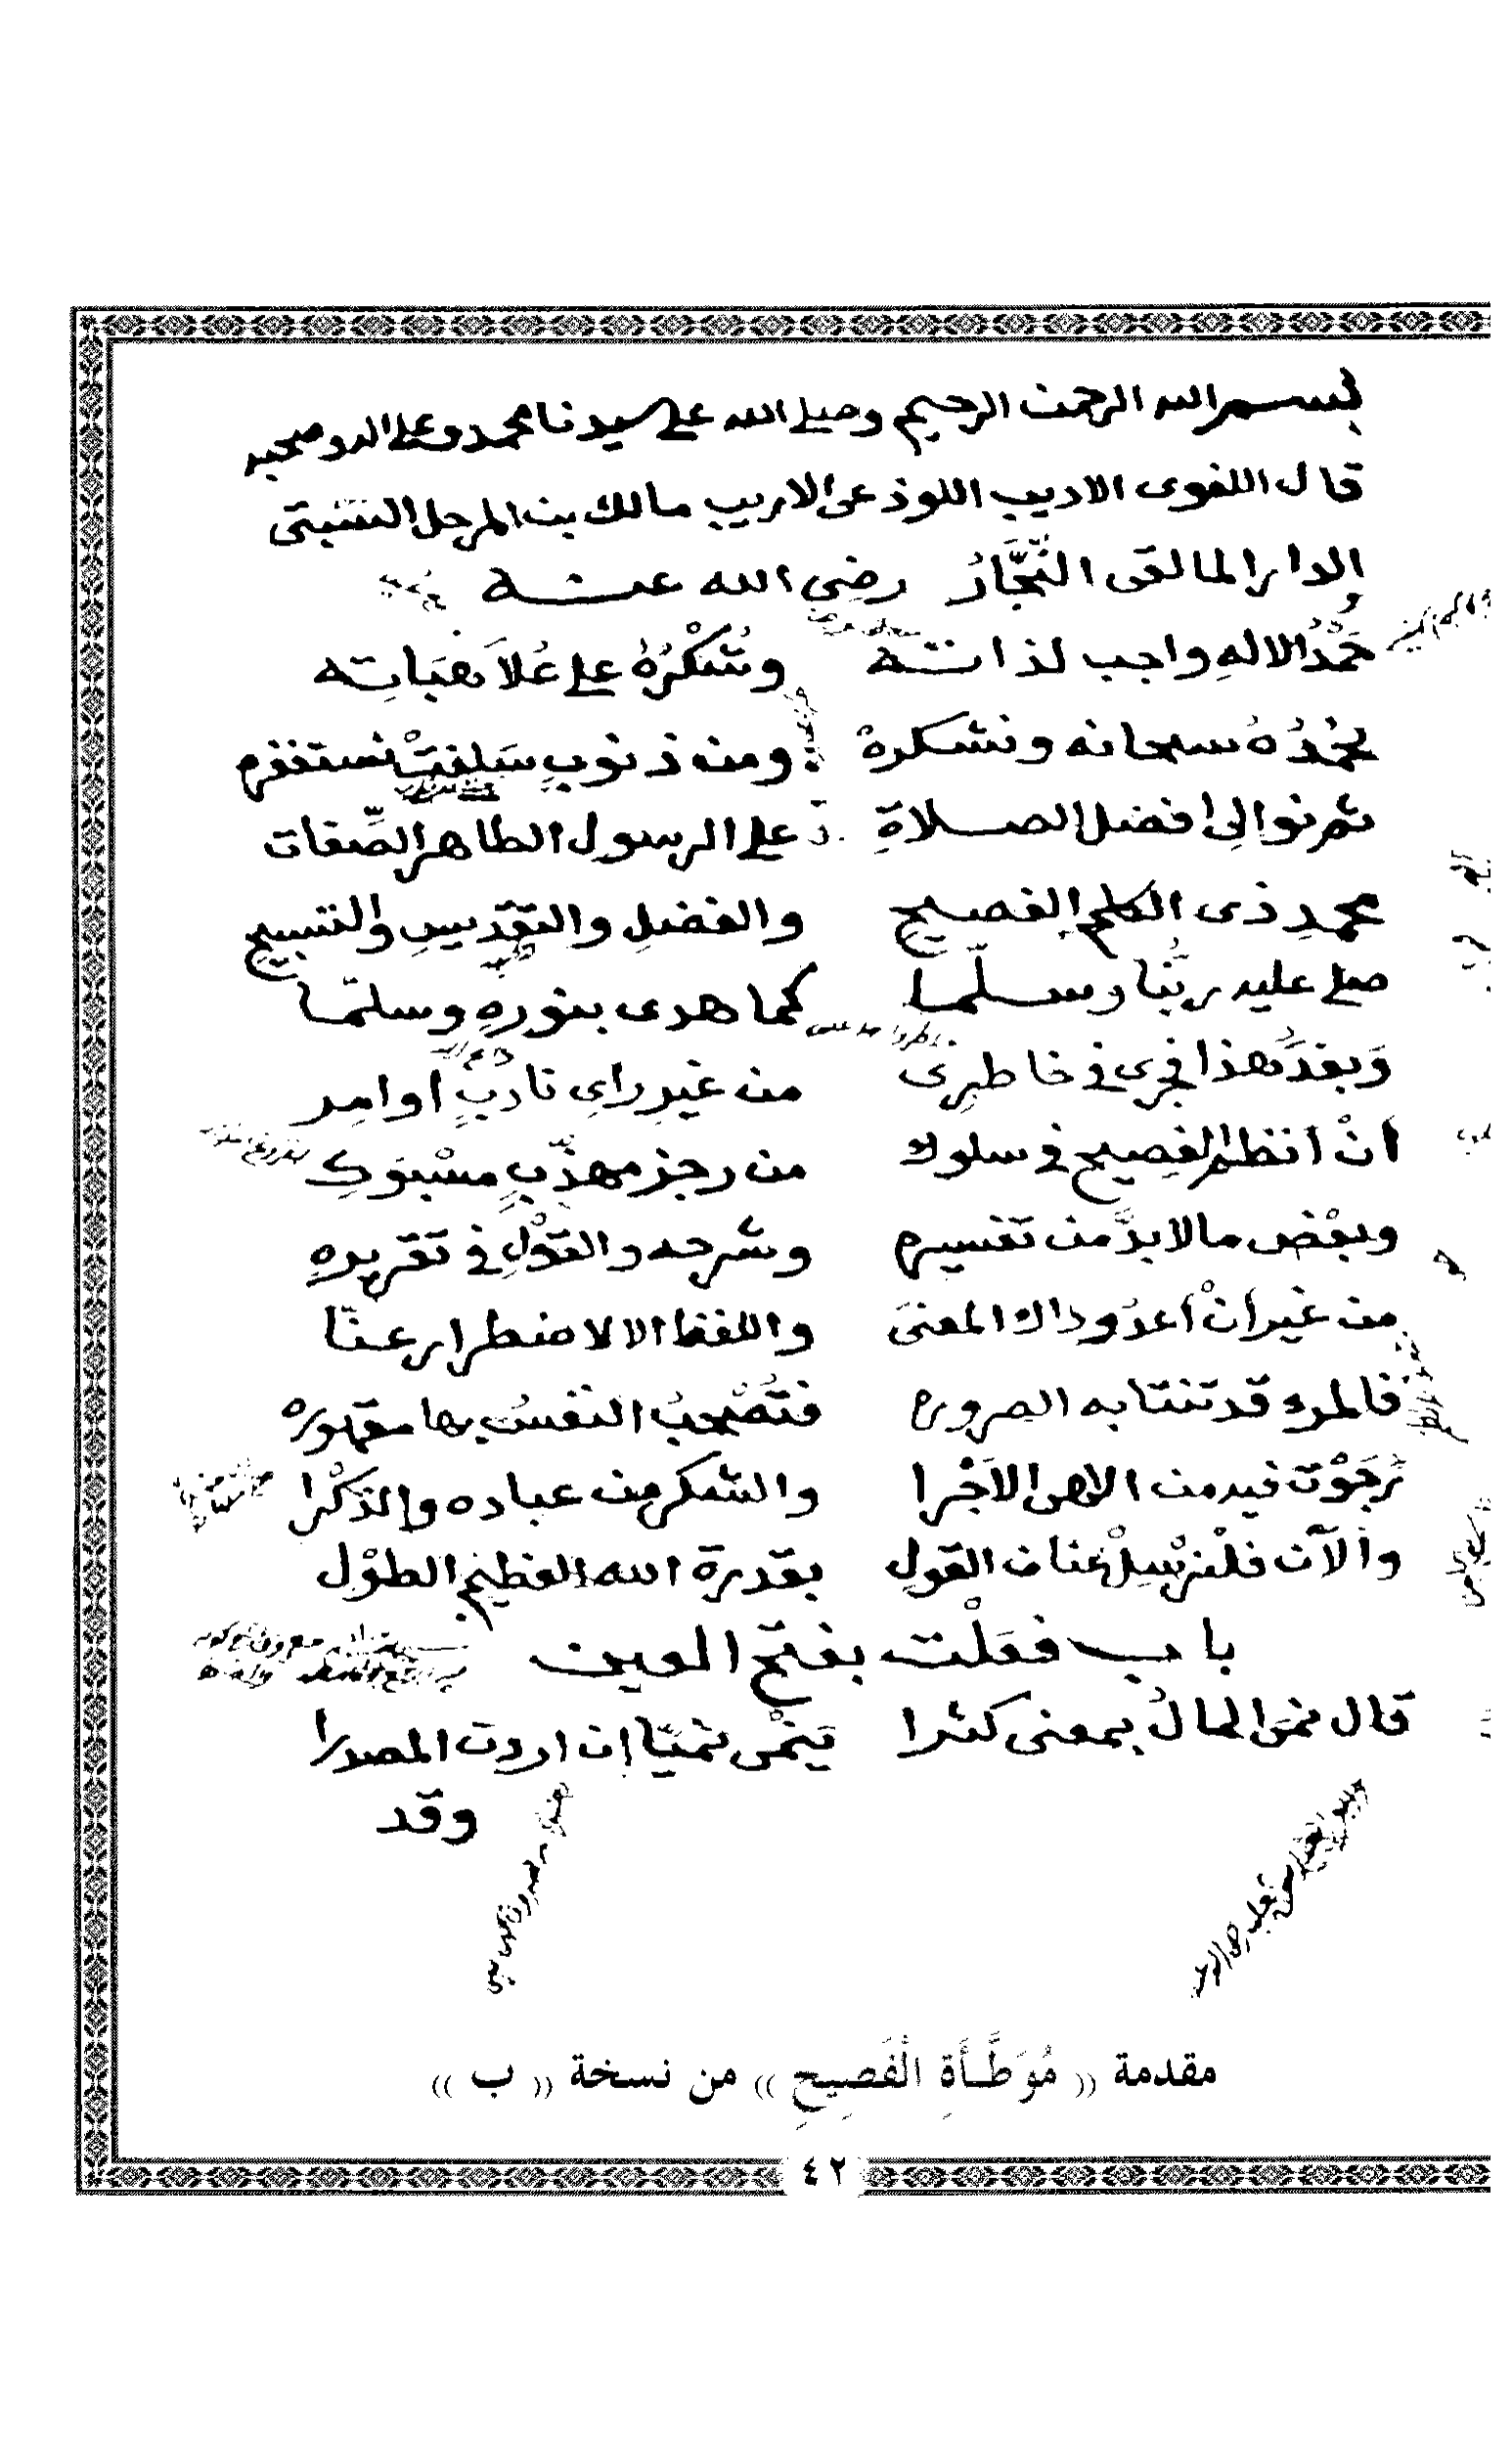 بسم الله الرحمن الرحيم وصلى الله على سيدنا محمد وعلى اله وصحبه
قال اللغوى الاديب اللوذعى الاريب مالك بن المرحل السبتى
الدار المالقى النَّجَّارُ رضى الله عنه
حَمْدُ الالهِ واجب لذاته وشُكْرُهُ على عُلاَ هِبَاتِه
نحْمَدُهُ سبحانه ونشكرهْ ومن ذنوبٍ سَلفتْ نستغفره
ثم نوالى افضل الصلاةِ على الرسول الطاهر الصِّفات
محمدٍ ذى الكلم الفصيح والفضلِ والتقديسِ والتسبيح
صلى عليه ربُّنا وسلّما كما هدى بنورهِ وسلّما
وَبعْدَ هذا فجرى فى خاطرِى من غيرِ راىِ نادبٍ اوامِر
أنْ انظم الفصيح فى سلوك من رجز مهذّبٍ مسْبوكِ
وبعْض ما لا بدَّ من تفسيره وشرحه والقوْلِ فى تقريرهِ
من غير أنْ أعدُو ذاك المعنَى واللفظ الا لاضطرار عنّا
فالمرء قد تنتابه الضروره فتُصْحِبُ النفسُ بها مقهوره
رَجَوْت فيه من الاهى الاَجْرا والشكر من عباده والذكْرا
والآن فلْنرْسِلْ عنان القول بقدرة الله العظيم الطوْل
باب فعَلْت بفتح العين
قال نمَى المالُ بمعنى كثرا يَنْمى نميّا إن اردت المصدرا
وقد
مقدمة (( مُوَطَّأَةِ الْفَصِيحِ )) من نسخة (( ب ))
٤٢